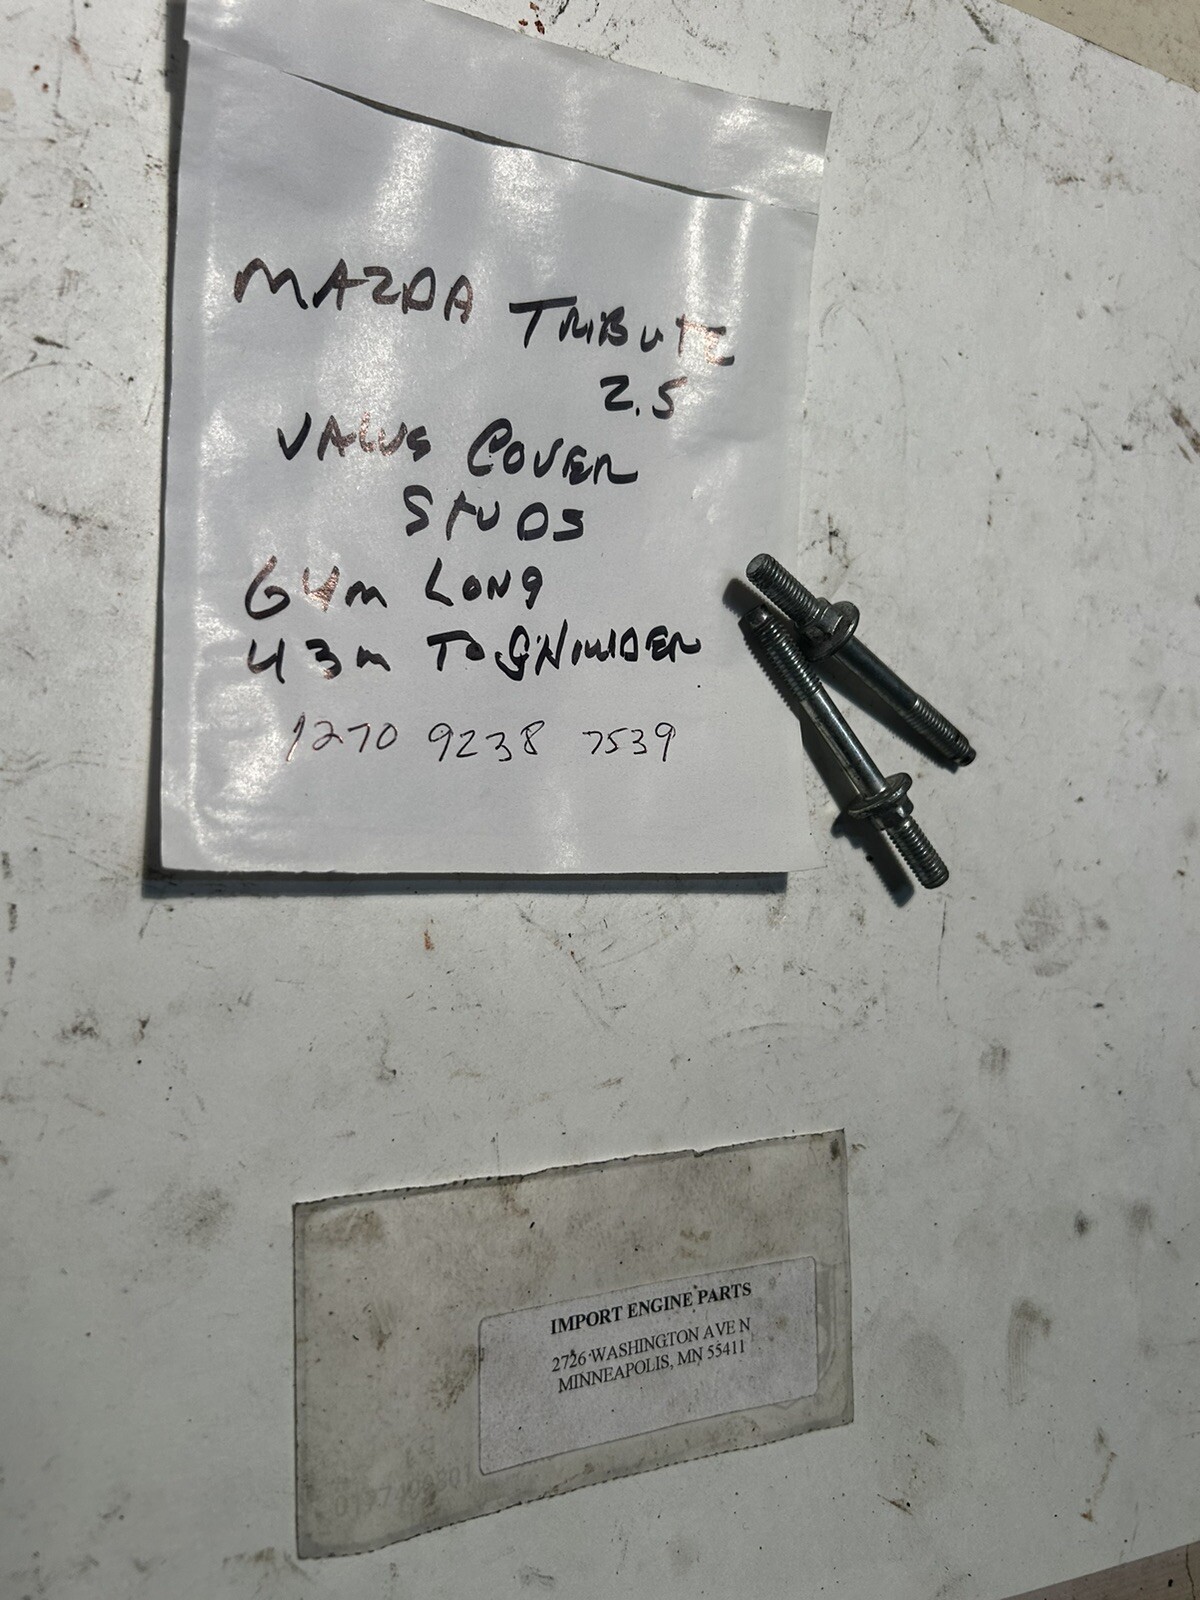 MAZDA TRIBUTE
2.5
VALVE COVER
STUDS
64m LONG
43m TO SHOULDER
1270 9238 7539
IMPORT ENGINE PARTS
2726 WASHINGTON AVE N
MINNEAPOLIS, MN 55411